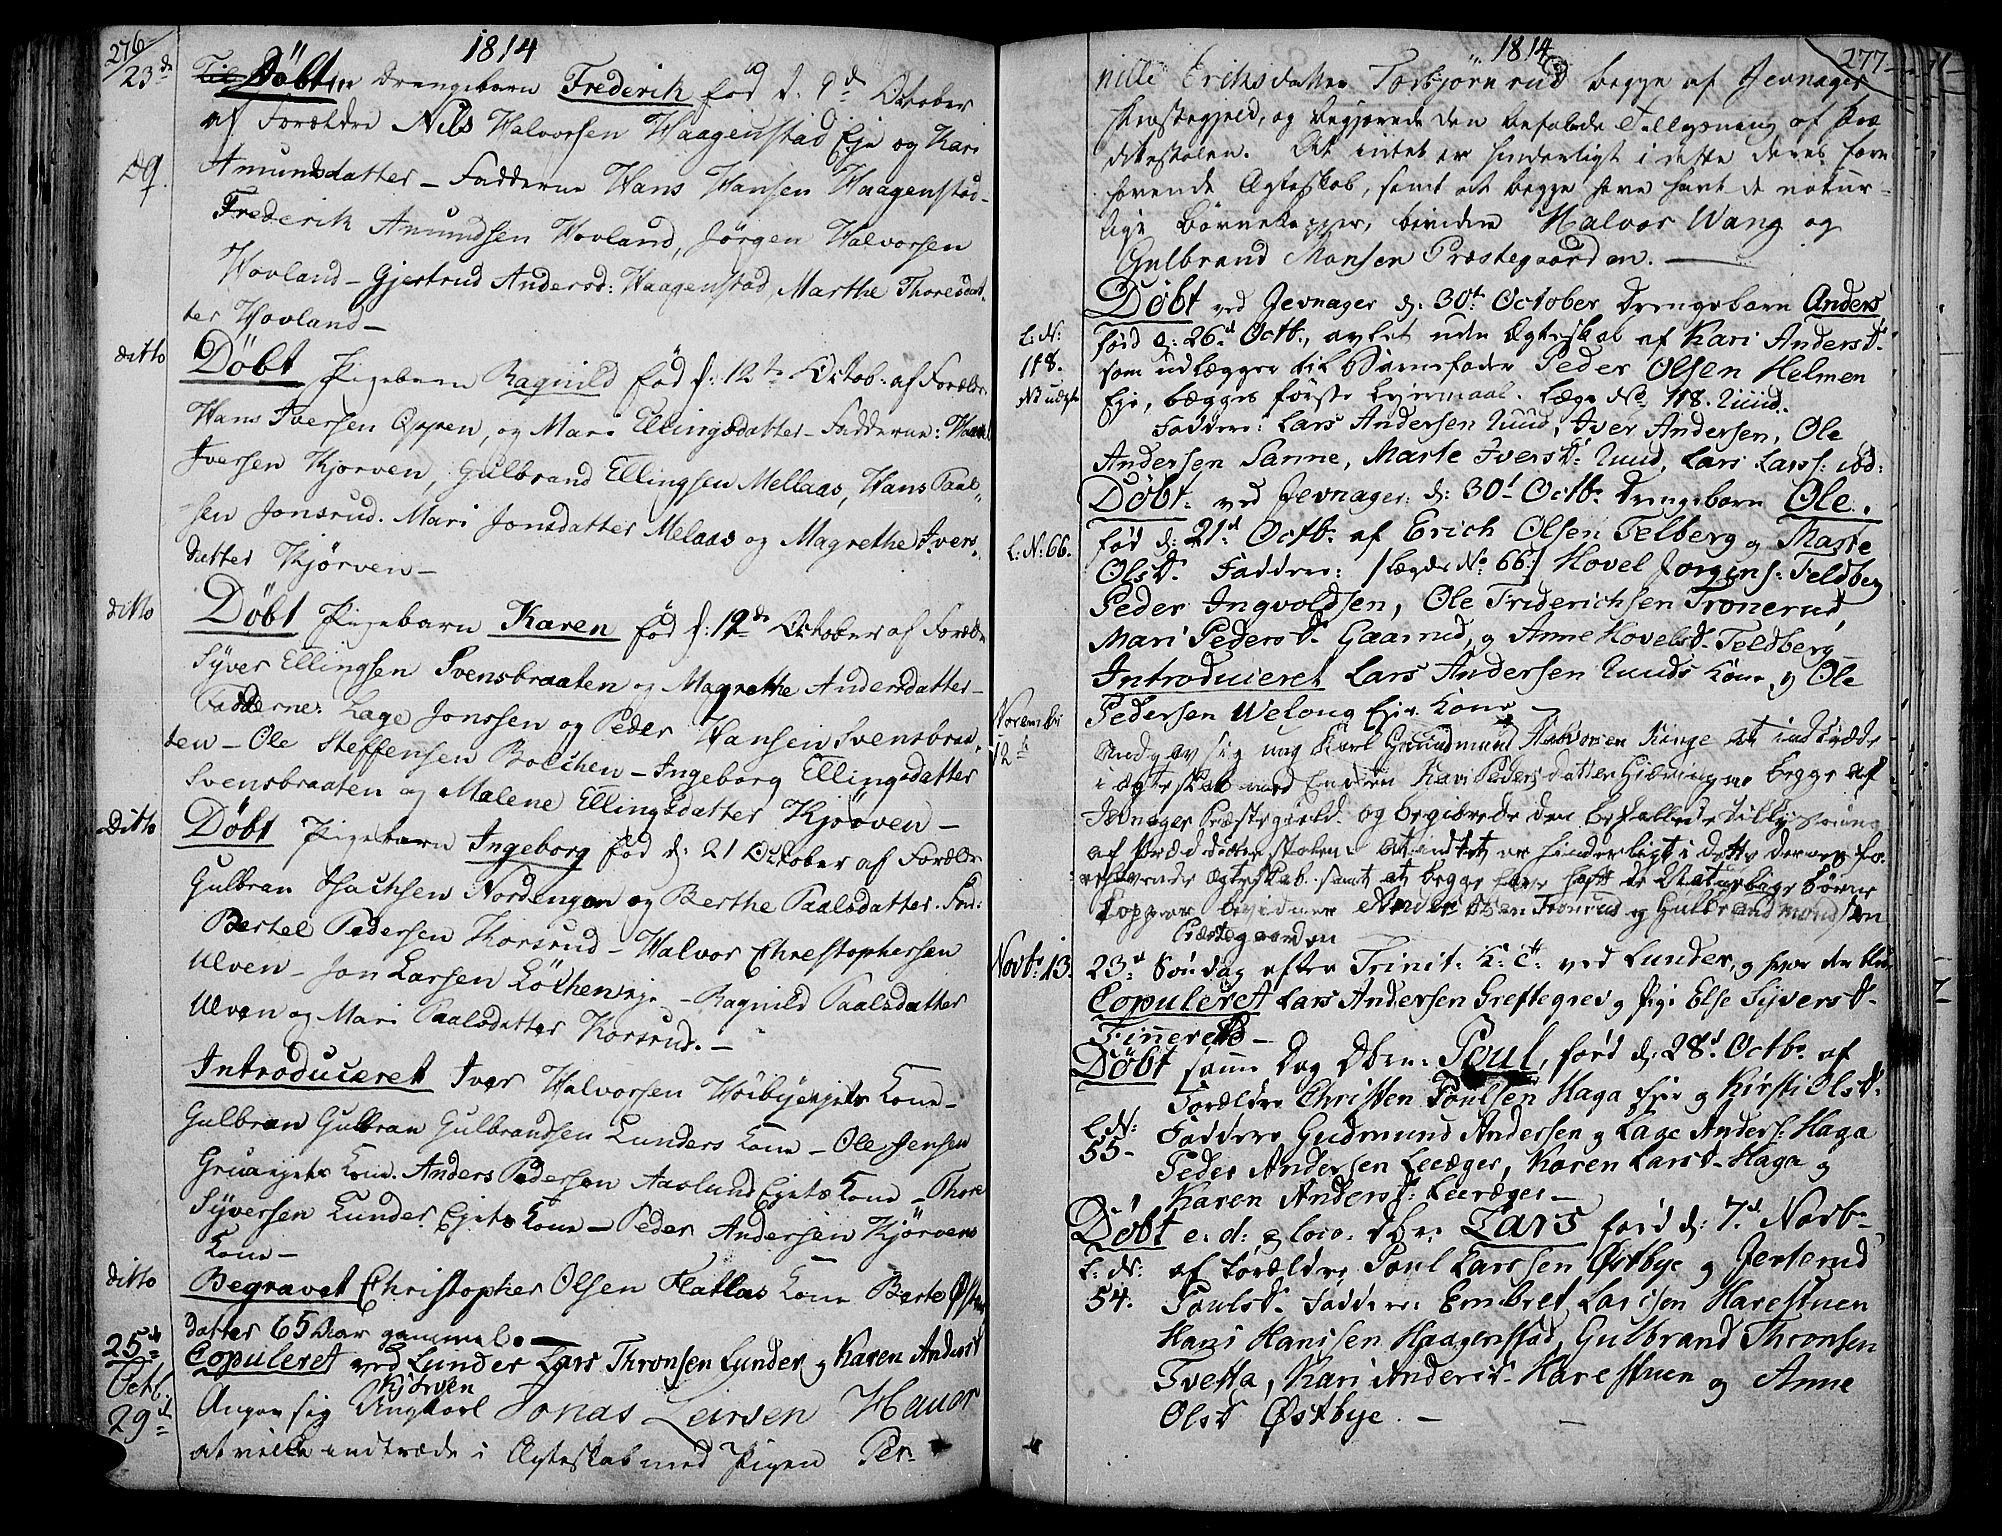 276
1814
23de Døbt Drengebarn Frederik fød d: 9d October
af Forældre Nils Halvorsen Haagenstad Eje og Kari
Amundsdatter – Fadderne Hans Hansen Haagenstad –
Frederik Amundsen Hovland, Jørgen Halvorsen
Hovland – Gjertrud Andersd: Haagenstad Marthe Thoresdat-
ter Hovland –
ditto Døbt Pigebarn Ragnild fød d: 12te Octob: af Forældr
Hans Iversen Oppen, og Mari Ellingsdatter – Fadderne:
Iversen Kjørven, Gulbrand Ellingsen Mellaas, Hans Paal-
sen Jonsrud. Mari Jonsdatter Melaas og Magrethe Ivers-
datter Kjørven –
ditto Døbt Pigebarn Karen fød d: 19de October af Forældr
Syver Ellingsen Svensbraaten og Magrethe Andersdatter –
Fadderne: Lage Jonssen og Peder Hansen Svensbraa-
ten – Ole Steffensen Bolchen – Ingeborg Ellingsdatter
Svensbraaten og Malene Ellingsdatter Kjørven –
Ditto Døbt Pigebarn Ingeborg fød d: 21 October af Forældr
Gulbran Isachsen Nordengen og Berthe Paalsdatter. Fad:
Bertel Pedersen Korsrud – Halvor Christophersen
Ulven – Jon Larsen Løkhen eje – Ragnild Paalsdatter
Ulven og Mari Paalsdatter Korsrud. –
Introduceret Iver Halvorsen Høibye ejets Kone –
Gulbran Gulbran Gulbrandsen Lunders Kone – Ole Jensen
Grua ejets Kone. Anders Pedersen Aaslund Ejets Kone – Thore
Syversen Lunder Ejets Kone – Peder Andersen Kjørvens
Kone –
ditto Begravet Christopher Olsen Flatlas Kone Berte
datter 65 Aar gammel. –
25de Octb. Copuleret ved Lunder Lars Thronsen Lunder og Karen Andersd
Kjørven
29d Angav sig Ungkarl Jonas Larsen Hauer
at ville indtræde i Ægteskab med Pigen Per-
1814
277
nille Eriksdatter Torbjørnrud begge af Jevnager
Præstegjeld, og begjærede den befalede Tillysning af Præ
dikestolen. At intet er hinderligt i dette deres fore
havende Ægteskab, samt at begge have havt de natur-
lige Børnekopper, bevidne Halvor Wang og
Gulbrand Monsen Præstegaarden. –
Døbt ved Jevnager d: 30te October Drengebarn Anders
L: N: 118. fød d: 26d Octb., avlet uden Ægteskab af Kari Andersd.
som udlægger til Barnefader Peder Olsen Helmen
Eje, begges første Leiermaal. Læge No 118. Ruud.
Faddere: Lars Andersen Ruud, Iver Andersen, Ole
Andersen Sanne, Marte Iversd: Ruud, Lars Larss: ibd:
Døbt: ved Jevnager: d: 30t Octb. Drengebarn Ole.
L: N: 66. fød d: 21d Octb. af Erich Olsen Felberg og Marte
Olsd. Faddere: /Lægde No 66/ Hovel Jørgens: Feldberg
Peder Ingvoldsen, Ole Friderichsen Tronerud,
Mari Pedersd. Gaarud, og Anne Hovelsd. Feldberg –
Introduceret Lars Andersen Ruuds Kone, og Ole
Pedersen Welong Eje Kone –
Novembr 12d Andgav sig ung Karl Gudmund Halvorsen Ringe at indtræde
i ægteskab med Enken Kari Pedersdatter begge af
Jevnager Præstegield. og begierede den befallede Tillysning
af Præddikestolen. At intet er hinderligt i dette deres fo-
rehavende ægteskab. samt at begge have haft de Naturlige børne
kopper bevidner Anders Olsen Tronrud og Gulbrand Mondsen
Præstegaarden
Novbr 13. 23d Søndag efter Trinit: K: C: ved Lunder, og hvor der blev
Copuleret Lars Andersen Greftegrev og Pige Else Syversd.
Finnerud –
Døbt samme Dag Dbrn: Poul, fød d: 28d Octbr af
Forældre Christen Poulsen Haga Eje og Kirsti Olsd.
L. N: 55 – Faddere Gudmund Andersen og Lage Anders: Haga
Peder Andersen Leeræger, Karen Larsd. Haga og
Karen Andersd: Leeræger –
Døbt e: d: & loco: Dbrn Lars fød d: 7d Novb.
L: N: 54. af Forældre Poul Larssen Østbye og Jertrud
Poulsd. Faddere: Embret Larssen Harestuen
Hans Hanssen Haagenstad, Gulbrand Thronsen
Tvetta, Kari Andersd. Harestuen og Anne
Olsd Østbye. –